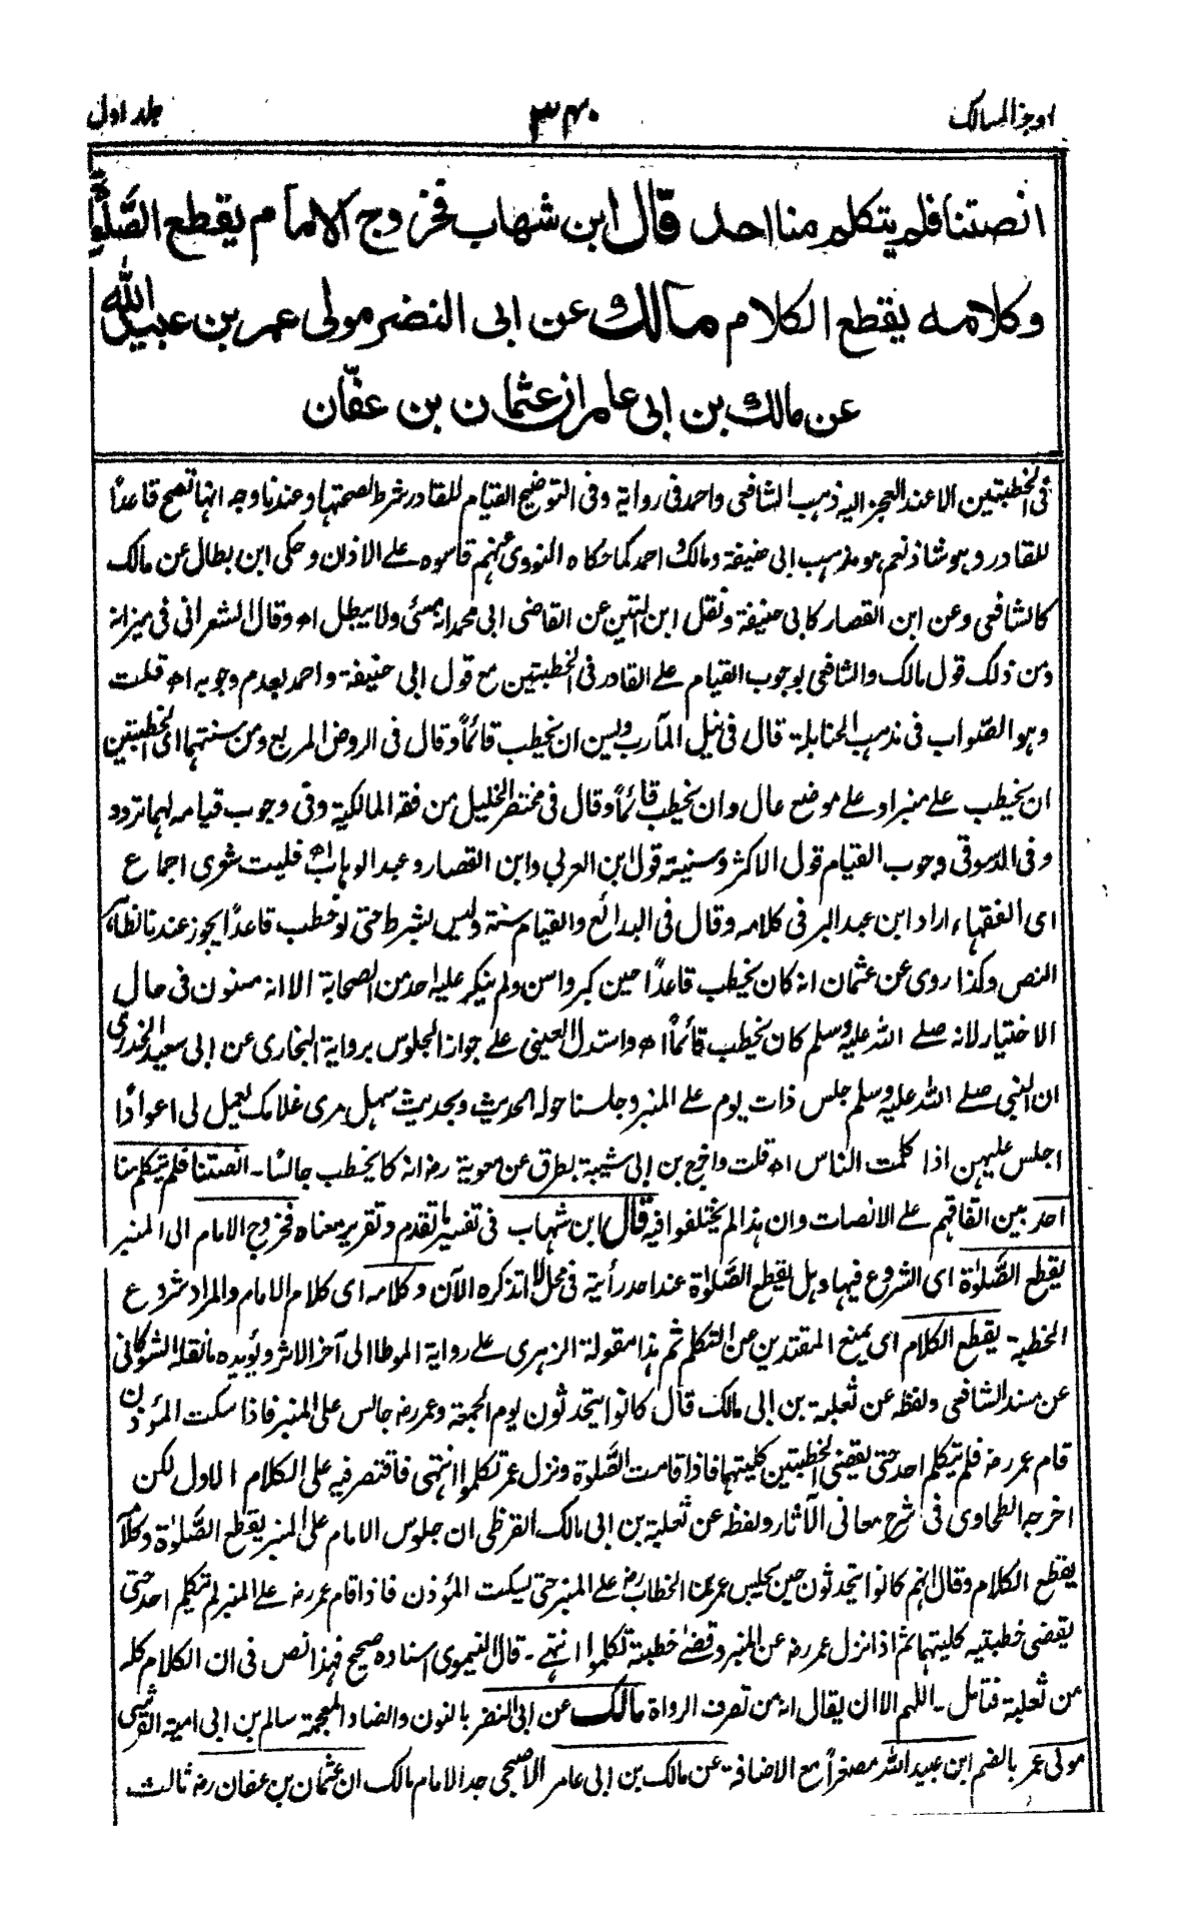 اوجز المسالك ٣٤٠ جلد اول
انصتنا فلم يتكلم منا احد قال ابن شهاب فخروج الامام يقطع الصلوة
وكلامه يقطع الكلام مالك عن ابى النضر مولى عمر بن عبيد الله
عن مالك بن ابى عامر ان عثمان بن عفان
فى الخطبتين الا عند العجز اليه ذهب الشافعى واحمد فى رواية وفى التوضيح القيام للقادر شرط لصحتها وعندنا وجه انها تصح قاعدًا
للقادر وهو شاذ نعم هو مذهب ابى حنيفة ومالك واحمد كما حكاه النووى عنهم قاسوه على الاذان وحكى ابن بطال عن مالك
كالشافعى وعن ابن القصار كابى حنيفة ونقل ابن التين عن القاضى ابى محمد انه مسئ ولا يبطل اه وقال الشعرانى فى ميزانه
ومن ذلك قول مالك والشافعى بوجوب القيام على القادر فى الخطبتين مع قول ابى حنيفة واحمد بعدم وجوبه اه قلت
وهو الصواب فى مذهب الحنابلة قال فى نيل المآرب ويسن ان يخطب قائماً وقال فى الروض المربع ومن سنتهما اى الخطبتين
ان يخطب على منبر او على موضع عال وان يخطب قائماً وقال فى مختصر الخليل من فقه المالكية وفى وجوب قيامه لهما تردد
وفى الدسوقى وجوب القيام قول الاكثر وسنيته قول ابن العربى وابن القصار وعبد الوهاب اه فليت شعرى اجماع
اى الفقهاء اراد ابن عبد البر فى كلامه وقال فى البدائع والقيام سنة وليس بشرط حتى لو خطب قاعدًا يجوز عندنا لظاهر
النص وكذا روى عن عثمان انه كان يخطب قاعدًا حين كبر واسن ولم ينكر عليه احد من الصحابة الا انه مسنون فى حال
الاختيار لانه صلى الله عليه وسلم كان يخطب قائماً اه واستدل العينى على جواز الجلوس برواية البخارى عن ابى سعيد الخدرى
ان النبى صلى الله عليه وسلم جلس ذات يوم على المنبر وجلسنا حوله الحديث وبحديث سهل مرى غلامك يعمل لى اعوادًا
اجلس عليهن اذا كلمت الناس اه قلت واخرج بن ابى شيبة بطرق عن معوية رض انه كا يخطب جالسًا ـ انصتنا فلم يتكلم منا
احد بين اتفاقهم على الانصات وان هذا لم يختلفوا فيه قال ابن شهاب فى تفسير ما تقدم وتقرير معناه فخروج الامام الى المنبر
يقطع الصلوٰة اى الشروع فيها وهل يقطع الصلوٰة عند احد رأيته فى محل لا اتذكره الآن وكلامه اى كلام الامام والمراد شروع
الخطبة يقطع الكلام اى يمنع المقتدين من التكلم ثم هذا مقولة الزهرى على رواية الموطا الى آخر الاثر ويؤيده ما نقله الشوكانى
عن مسند الشافعى ولفظه عن ثعلبة بن ابى مالك قال كانوا يتحدثون يوم الجمعة وعمر رض جالس على المنبر فاذا سكت المؤذن
قام عمر رض فلم يتكلم احد حتى يقضى الخطبتين كليتهما فاذا قامت الصلوة ونزل عمر تكلموا انتهى فاقتصر فيه على الكلام الاول لكن
اخرجه الطحاوى فى شرح معانى الآثار ولفظه عن ثعلبة بن ابى مالك القرظى ان جلوس الامام على المنبر يقطع الصلوٰة وكلامه
يقطع الكلام وقال انهم كانوا يتحدثون حين يجلس عمر بن الخطاب رض على المنبر حتى يسكت المؤذن فاذا قام عمر رض على المنبر لم يتكلم احد حتى
يقضى خطبتيه كليتهما ثم اذا نزل عمر رض عن المنبر وقضى خطبته تكلموا انتهى ـ قال النيموى اسناده صحيح فهذا نص فى ان الكلام كله
من ثعلبة فتامل ـ اللهم الا ان يقال انه من تصرف الرواة مالك عن ابى النضر بالنون والضاد المعجمة سالم بن ابى امية القرشى
مولى عمر بالضم ابن عبيد الله مصغراً مع الاضافة عن مالك بن ابى عامر الاصبحى جد الامام مالك ان عثمان بن عفان رض ثالث